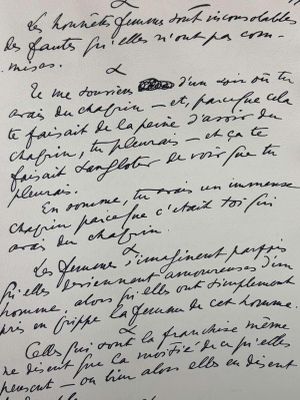 Les honnêtes femmes sont inconsolables
des fautes qu'elles n'ont pas com-
mises.
Je me souviens d'un soir où tu
avais du chagrin — et, parce que cela
te faisait de la peine d'avoir du
chagrin, tu pleurais — et ça te
faisait sangloter de voir que tu
pleurais.
En somme, tu avais un immense
chagrin parce que c'était toi qui
avais du chagrin.
Les femmes s'imaginent parfois
qu'elles deviennent amoureuses d'un
homme, alors qu'elles ont simplement
pris en grippe la femme de cet homme.
Celles qui sont la franchise même
ne disent que la moitié de ce qu'elles
pensent — ou bien alors elles en disent